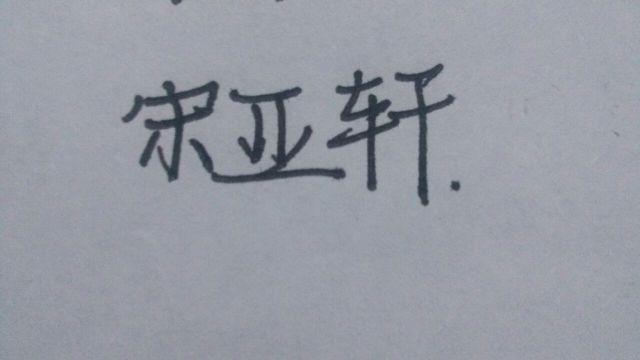 宋亚轩.